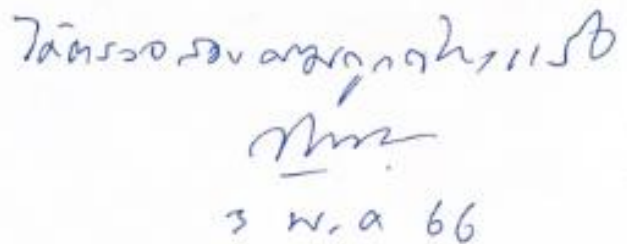 ได้ตรวจสอบความถูกต้องแล้ว
3 พ.ค 66